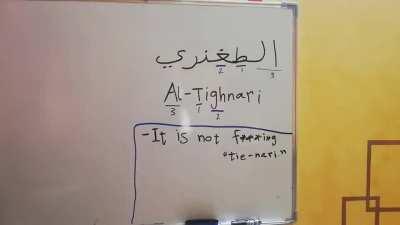 الطغنري
2 1 3
Al-Tighnari
3 1 2
-It is not f***ing
"tie-nari"